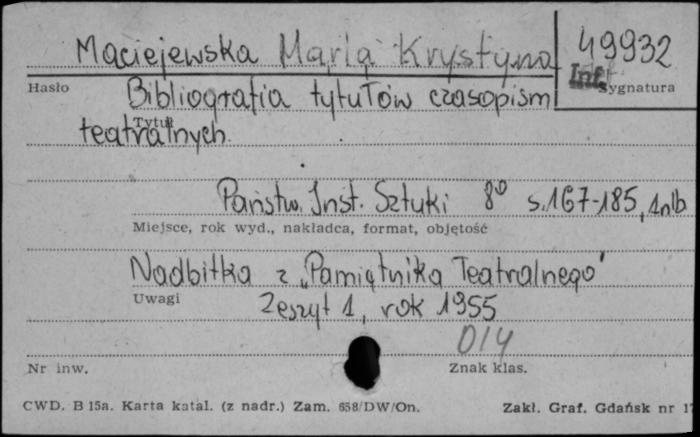 Maciejewska Maria Krystyna 49932
Hasło Inf. Sygnatura
Bibliografia tytułów czasopism
Tytuł
teatralnych
Państw. Inst. Sztuki 8° s.167-185, 1nlb
Miejsce, rok wyd., nakładca, format, objętość
Nadbitka z „Pamiętnika Teatralnego"
Uwagi
Zeszyt 1, rok 1955
014
Nr inw. Znak klas.
CWD. B 15a. Karta katal. (z nadr.) Zam. 658/DW/On. Zakł. Graf. Gdańsk nr